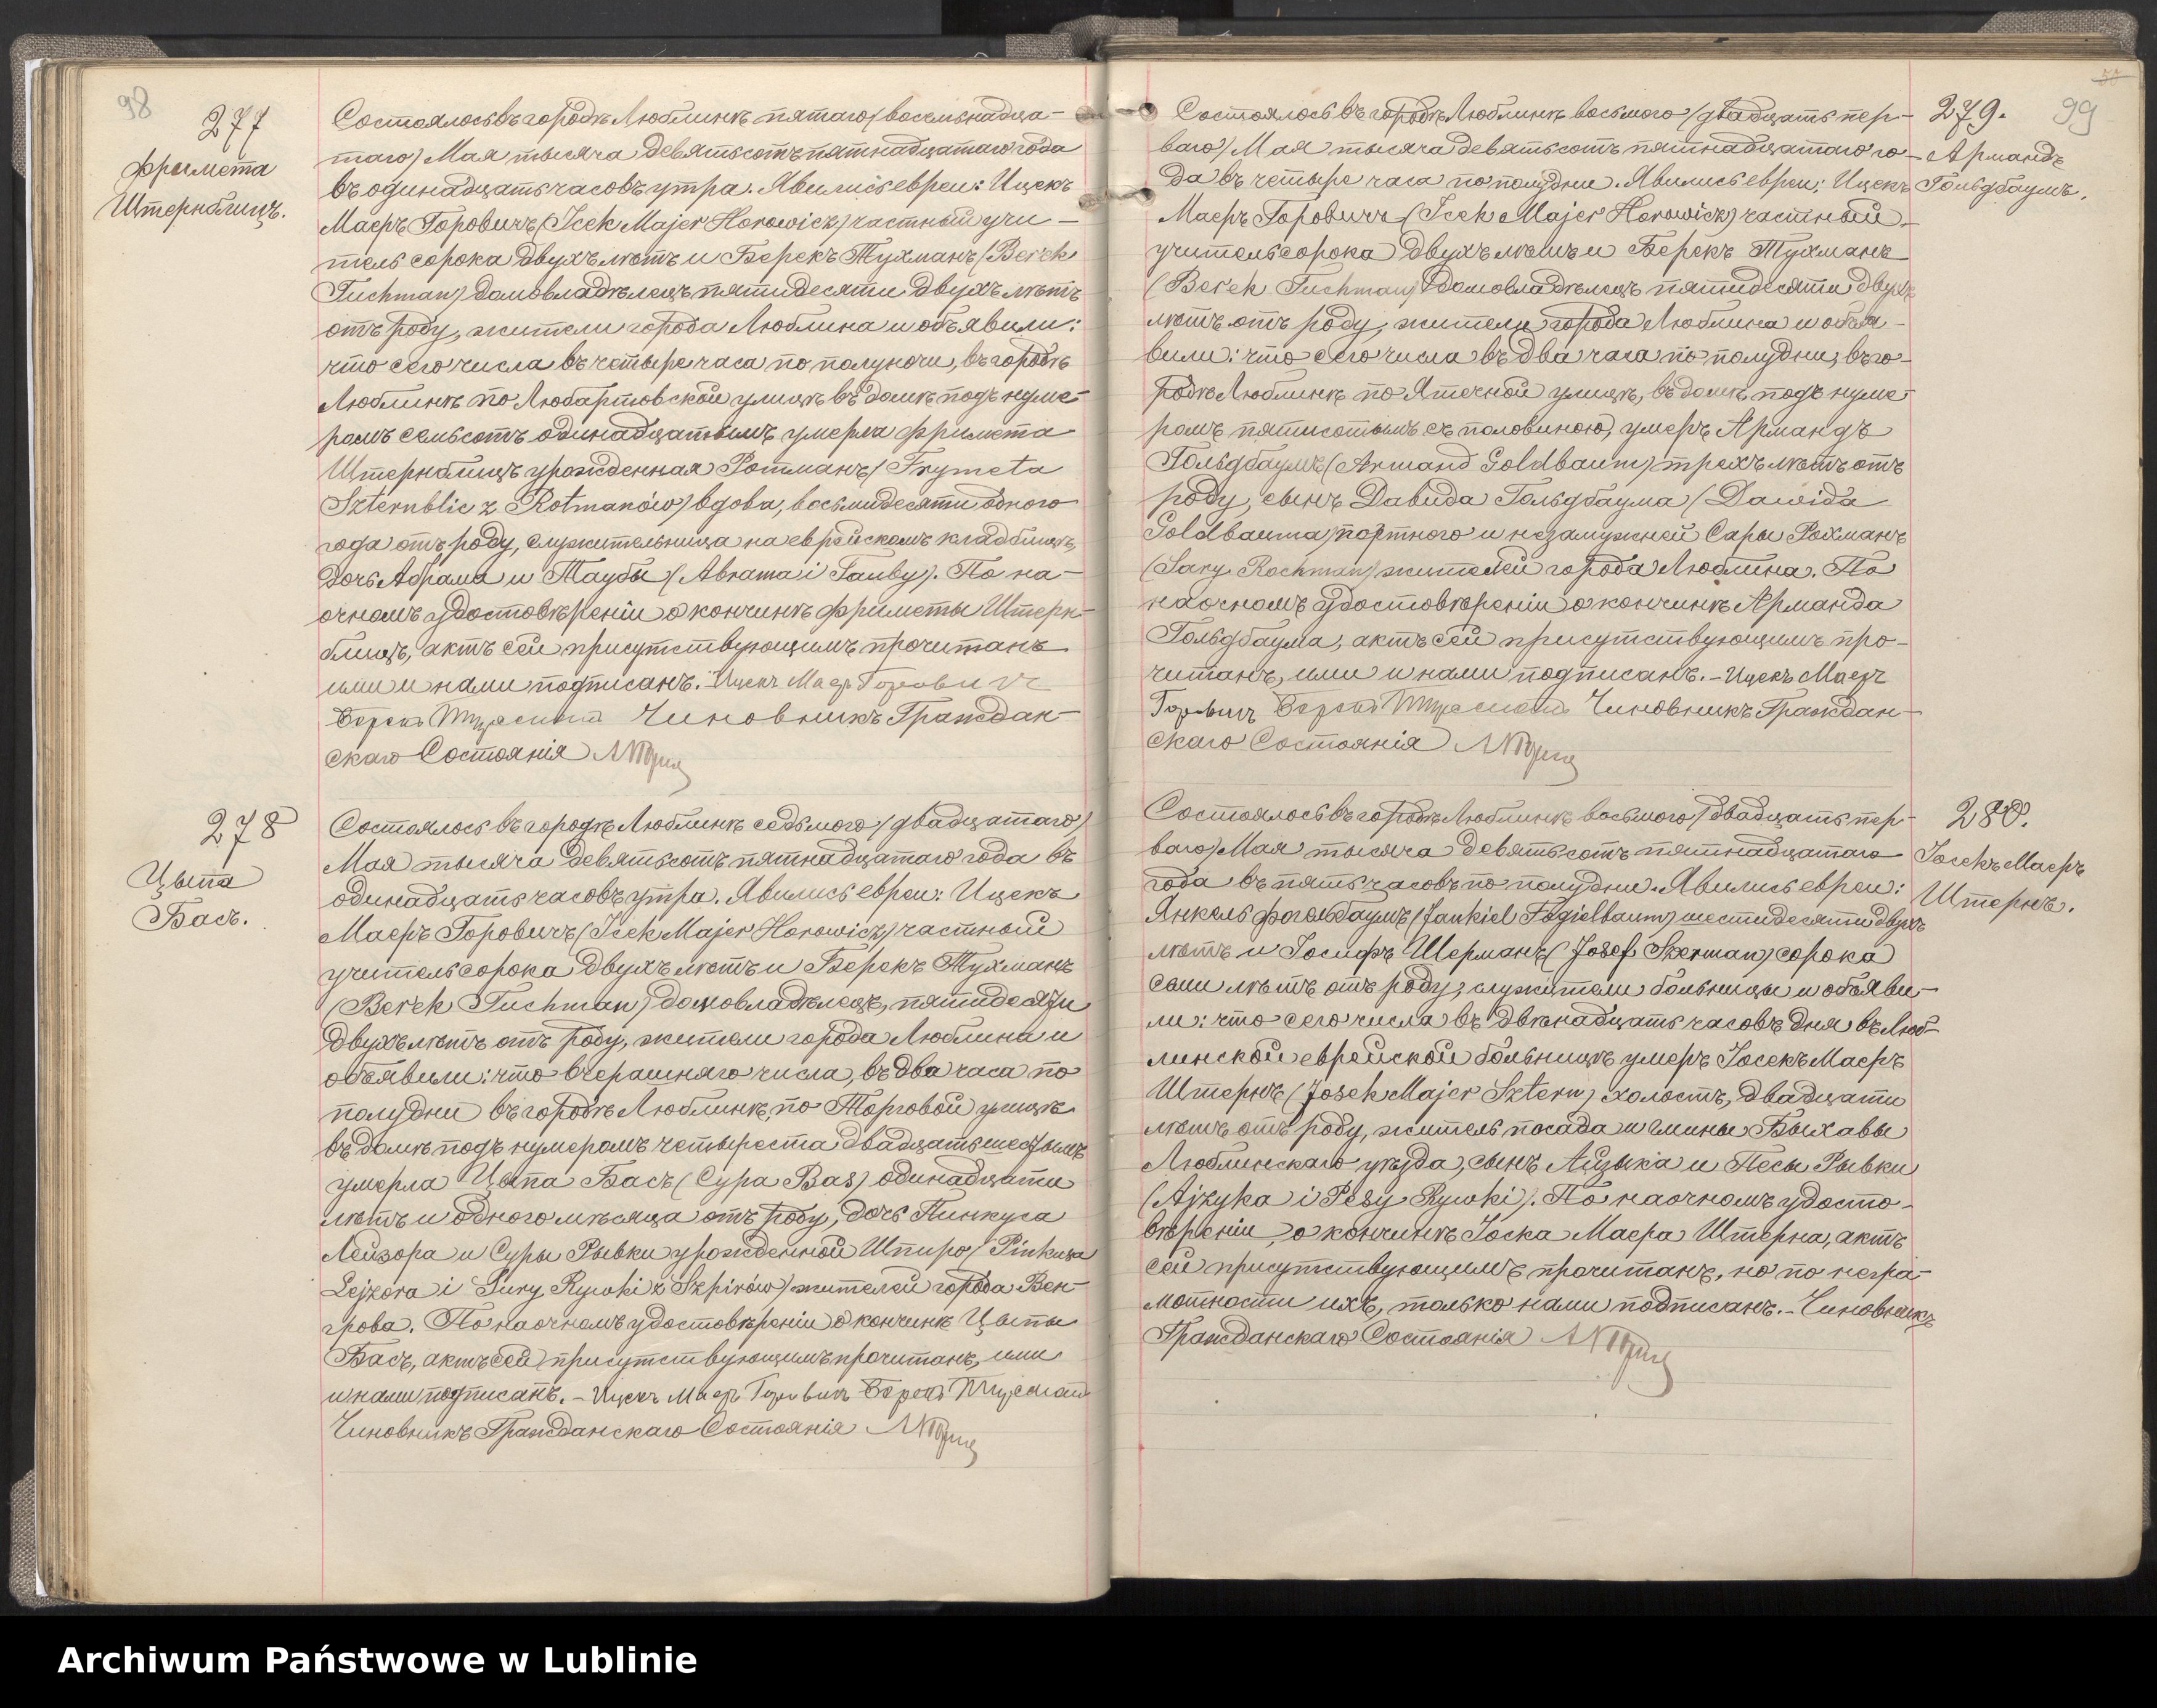 98
277
Фримета
Штернблицъ.
Состоялось въ городѣ Люблинѣ пятаго/восемнадца-
таго/ Мая тысяча девятьсотъ пятнадцатаго года
въ одинадцать часовъ утра. Явились евреи: Ицекъ
Маеръ Горовичъ (Icek Majer Horowicz) частный учи-
тель сорока двухъ лѣтъ и Берекъ Тухманъ (Berek
Tuchman) домовладѣлецъ пятидесяти двухъ лѣтъ
отъ роду, жители города Люблина и объявили:
что сего числа въ четыре часа по полуночи, въ городѣ
Люблинѣ по Любартовской улицѣ въ домѣ подъ нуме-
ромъ семьсотъ одинадцатымъ умерла Фримета
Штернблицъ урожденная Ротманъ (Frymeta
Szternblic z Rotmanów) вдова, восьмидесяти одного
года отъ роду, служительница на еврейскомъ кладбищѣ,
дочь Абрама и Таубы (Abrama i Tauby). По на-
очномъ удостовѣреніи о кончинѣ Фриметы Штерн-
блицъ, актъ сей присутствующимъ прочитанъ
ими и нами подписанъ. - Ицекъ Маеръ Горовичъ
Берекъ Тухманъ Чиновникъ Граждан-
скаго Состоянія
278
Цыпа
Басъ.
Состоялось въ городѣ Люблинѣ седьмого/двадцатаго/
Мая тысяча девятьсотъ пятнадцатаго года въ
одинадцать часовъ утра. Явились евреи: Ицекъ
Маеръ Горовичъ (Icek Majer Horowicz) частный
учитель сорока двухъ лѣтъ и Берекъ Тухманъ
(Berek Tuchman) домовладѣлецъ, пятидесяти
двухъ лѣтъ отъ роду, жители города Люблина и
объявили: что вчерашняго числа, въ два часа по
полудни въ городѣ Люблинѣ, по Торговой улицѣ
въ домѣ подъ нумеромъ четыреста двадцать шестымъ
умерла Цыпа Басъ (Cypa Bas) одинадцати
лѣтъ и одного мѣсяца отъ роду, дочь Пинкуса
Лейзора и Суры Рывки урожденной Шпиро (Pinkusa
Lejzora i Sury Rywki z Szpirów) жителей города Вен-
грова. По наочномъ удостовѣреніи о кончинѣ Цыпы
Басъ, актъ сей присутствующимъ прочитанъ, ими
и нами подписанъ. - Ицекъ Маеръ Горовичъ Берекъ Тухманъ
Чиновникъ Гражданскаго Состоянія
99
279.
Армандъ
Гольдбаумъ.
Состоялось въ городѣ Люблинѣ восьмого/двадцать пер-
ваго/ Мая тысяча девятьсотъ пятнадцатаго го-
да въ четыре часа по полудни. Явились евреи: Ицекъ
Маеръ Горовичъ (Icek Majer Horowicz) частный
учитель сорока двухъ лѣтъ и Берекъ Тухманъ
(Berek Tuchman) домовладѣлецъ пятидесяти двухъ
лѣтъ отъ роду, жители города Люблина и объя-
вили: что сего числа въ два часа по полудни, въ го-
родѣ Люблинѣ по Ятечной улицѣ, въ домѣ подъ нуме-
ромъ пятисотымъ съ половиною, умеръ Армандъ
Гольдбаумъ (Armand Goldbaum) трехъ лѣтъ отъ
роду, сынъ Давида Гольдбаума (Dawida
Goldbauma) портного и незамужней Сары Рохманъ
(Sary Rochman) жителей города Люблина. По
наочномъ удостовѣреніи о кончинѣ Арманда
Гольдбаума, актъ сей присутствующимъ про-
читанъ, ими и нами подписанъ. - Ицекъ Маеръ
Горовичъ Берекъ Тухманъ Чиновникъ Граждан-
скаго Состоянія
280.
Іосекъ Маеръ
Штернъ.
Состоялось въ городѣ Люблинѣ восьмого/двадцать пер-
ваго/ Мая тысяча девятьсотъ пятнадцатаго
года въ пять часовъ по полудни. Явились евреи:
Янкель Фогельбаумъ (Jankiel Fogielbaum) шестидесяти двухъ
лѣтъ и Іосифъ Шерманъ (Josef Szerman) сорока
семи лѣтъ отъ роду, служители больницы и объяви-
ли: что сего числа въ двѣнадцать часовъ дня въ Люб-
линской еврейской больницѣ умеръ Іосекъ Маеръ
Штернъ (Josek Majer Sztern) холостъ, двадцати
лѣтъ отъ роду, житель посада и гмины Быхавы
Люблинскаго уѣзда, сынъ Айзыка и Песы Рывки
(Ajzyka i Pesy Rywki). По наочномъ удосто-
вѣреніи о кончинѣ Іоска Маера Штерна, актъ
сей присутствующимъ прочитанъ, но по негра-
мотности ихъ, только нами подписанъ. - Чиновникъ
Гражданскаго Состоянія
Archiwum Państwowe w Lublinie